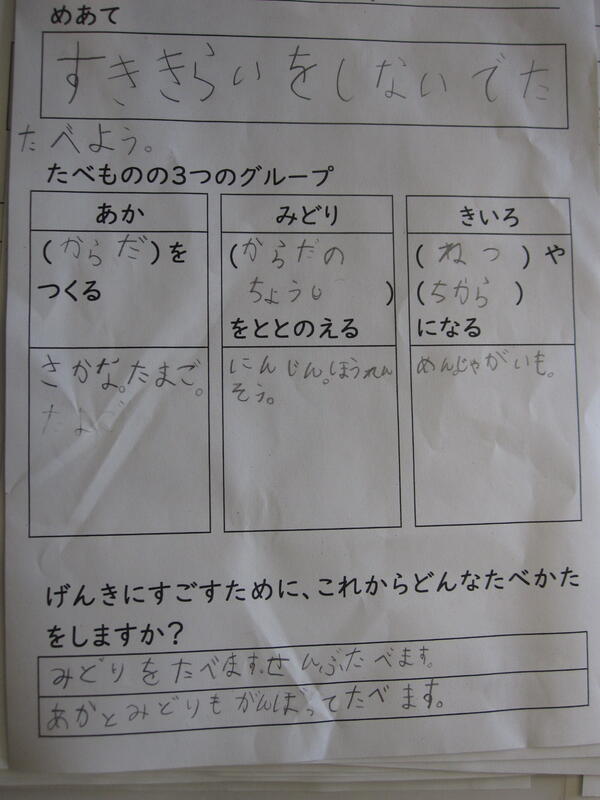 めあて
すききらいをしないでた
たべよう。
たべものの3つのグループ
あか
(からだ)を
つくる
さかな。たまご。
たまご
みどり
(からだの
ちょうし)
をととのえる
にんじん。ほうれん
そう。
きいろ
(ねつ)や
(ちから)
になる
めんじゃがいも。
げんきにすごすために、これからどんなたべかた
をしますか?
みどりをたべます。せんぶたべます。
あかとみどりもがんばってたべます。